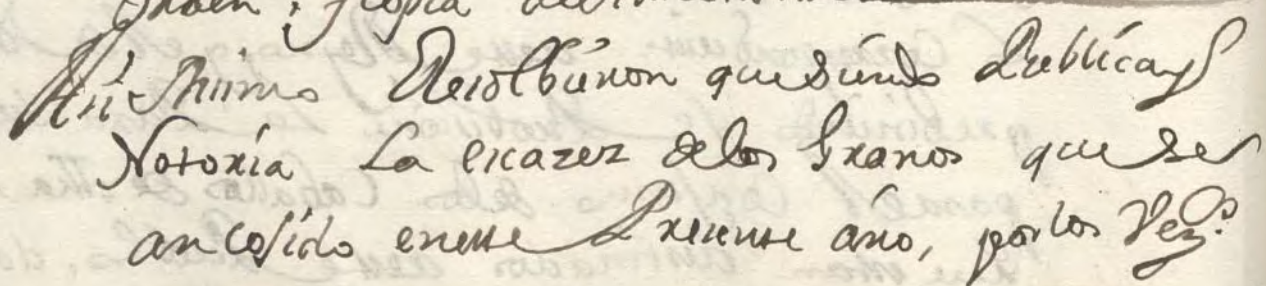 Orden, y copia
Asi Mismo Resolbieron que siendo Publica, y
Notoria La escasez delos Granos que se
an cojido eneste Presente año, por los Vez.s